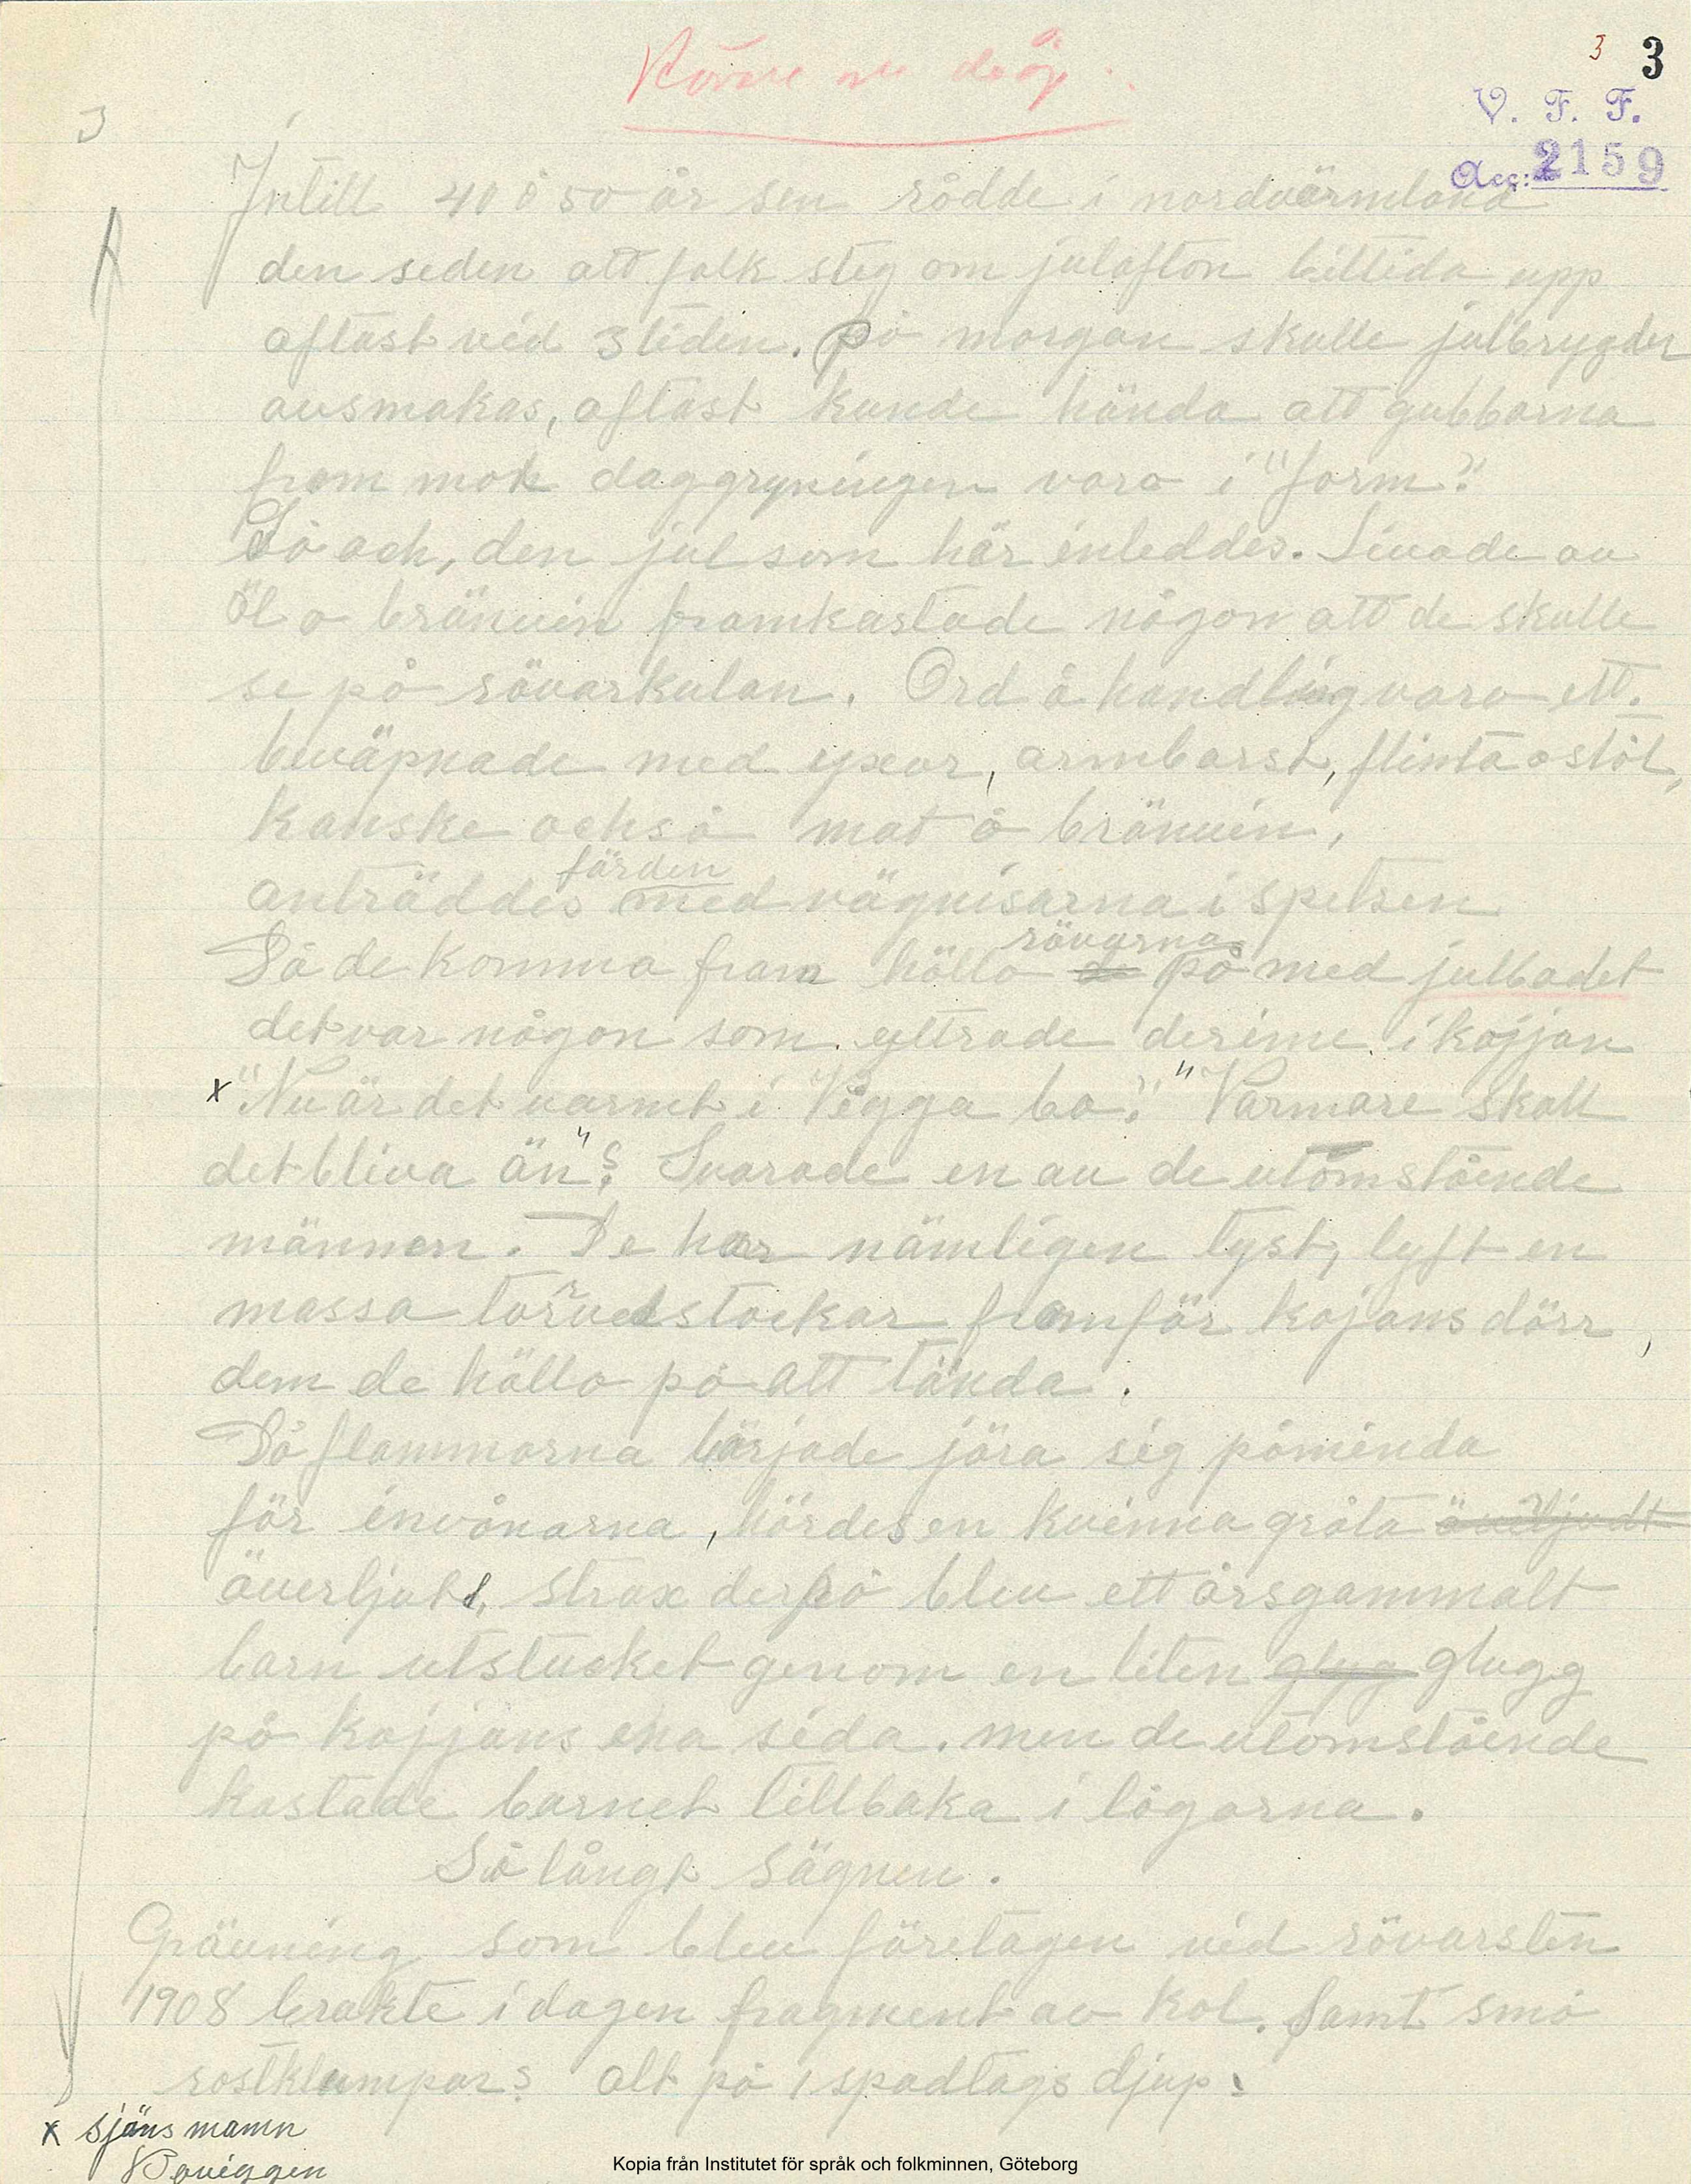 3 3
V. F. F.
Acc: 2159
3
Intill 40 å 50 år sen rådde i nordvärmland
den seden att folk steg om julafton bittida upp
oftast vid 3 tiden. på morgan skulle julbrygder
avsmakas, oftast kunde hända att gubbarna
fram mot daggryningen voro i "form".
Så och, den jul som här inleddes. Livade av
öl o brännvin framkastade någon att de skulle
se på rövarkulan. Ord å handling voro ett.
beväpnade med yxor, armborst, flinta o stål,
kanske också mat å brännvin,
anträddes färden med vägvisarna i spetsen
Då de komma fram höllo rövarna på med julbadet
det var någon som yttrade derinne i kojjan
x "Nu är det varmt i Vigga bo". "Varmare skall
det bliva än". Svarade en av de utomstående
männen. De har nämligen tyst, lyft en
massa torrvedstockar framför kojans dörr,
dem de höllo på att tända.
Då flammorna började jöra sig påminda
för invånarna, hördes en kvinna gråta överljudt
överljutt, strax derpå blev ett årsgammalt
barn utstucket genom en liten glyg glugg
på kojjans ena sida. men de utomstående
kastade barnet tillbaka i lågorna.
Så långt sägnen.
Grävning som blev företagen vid rövarsten
1908 brakte i dagen fragment av kol. samt små
rostklumpar? alt på 1 spadtags djup.
x sjöns namn
Kopia från Institutet för språk och folkminnen, Göteborg